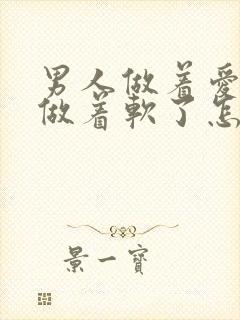 男人做着爱
做着軟了怎
景一寶